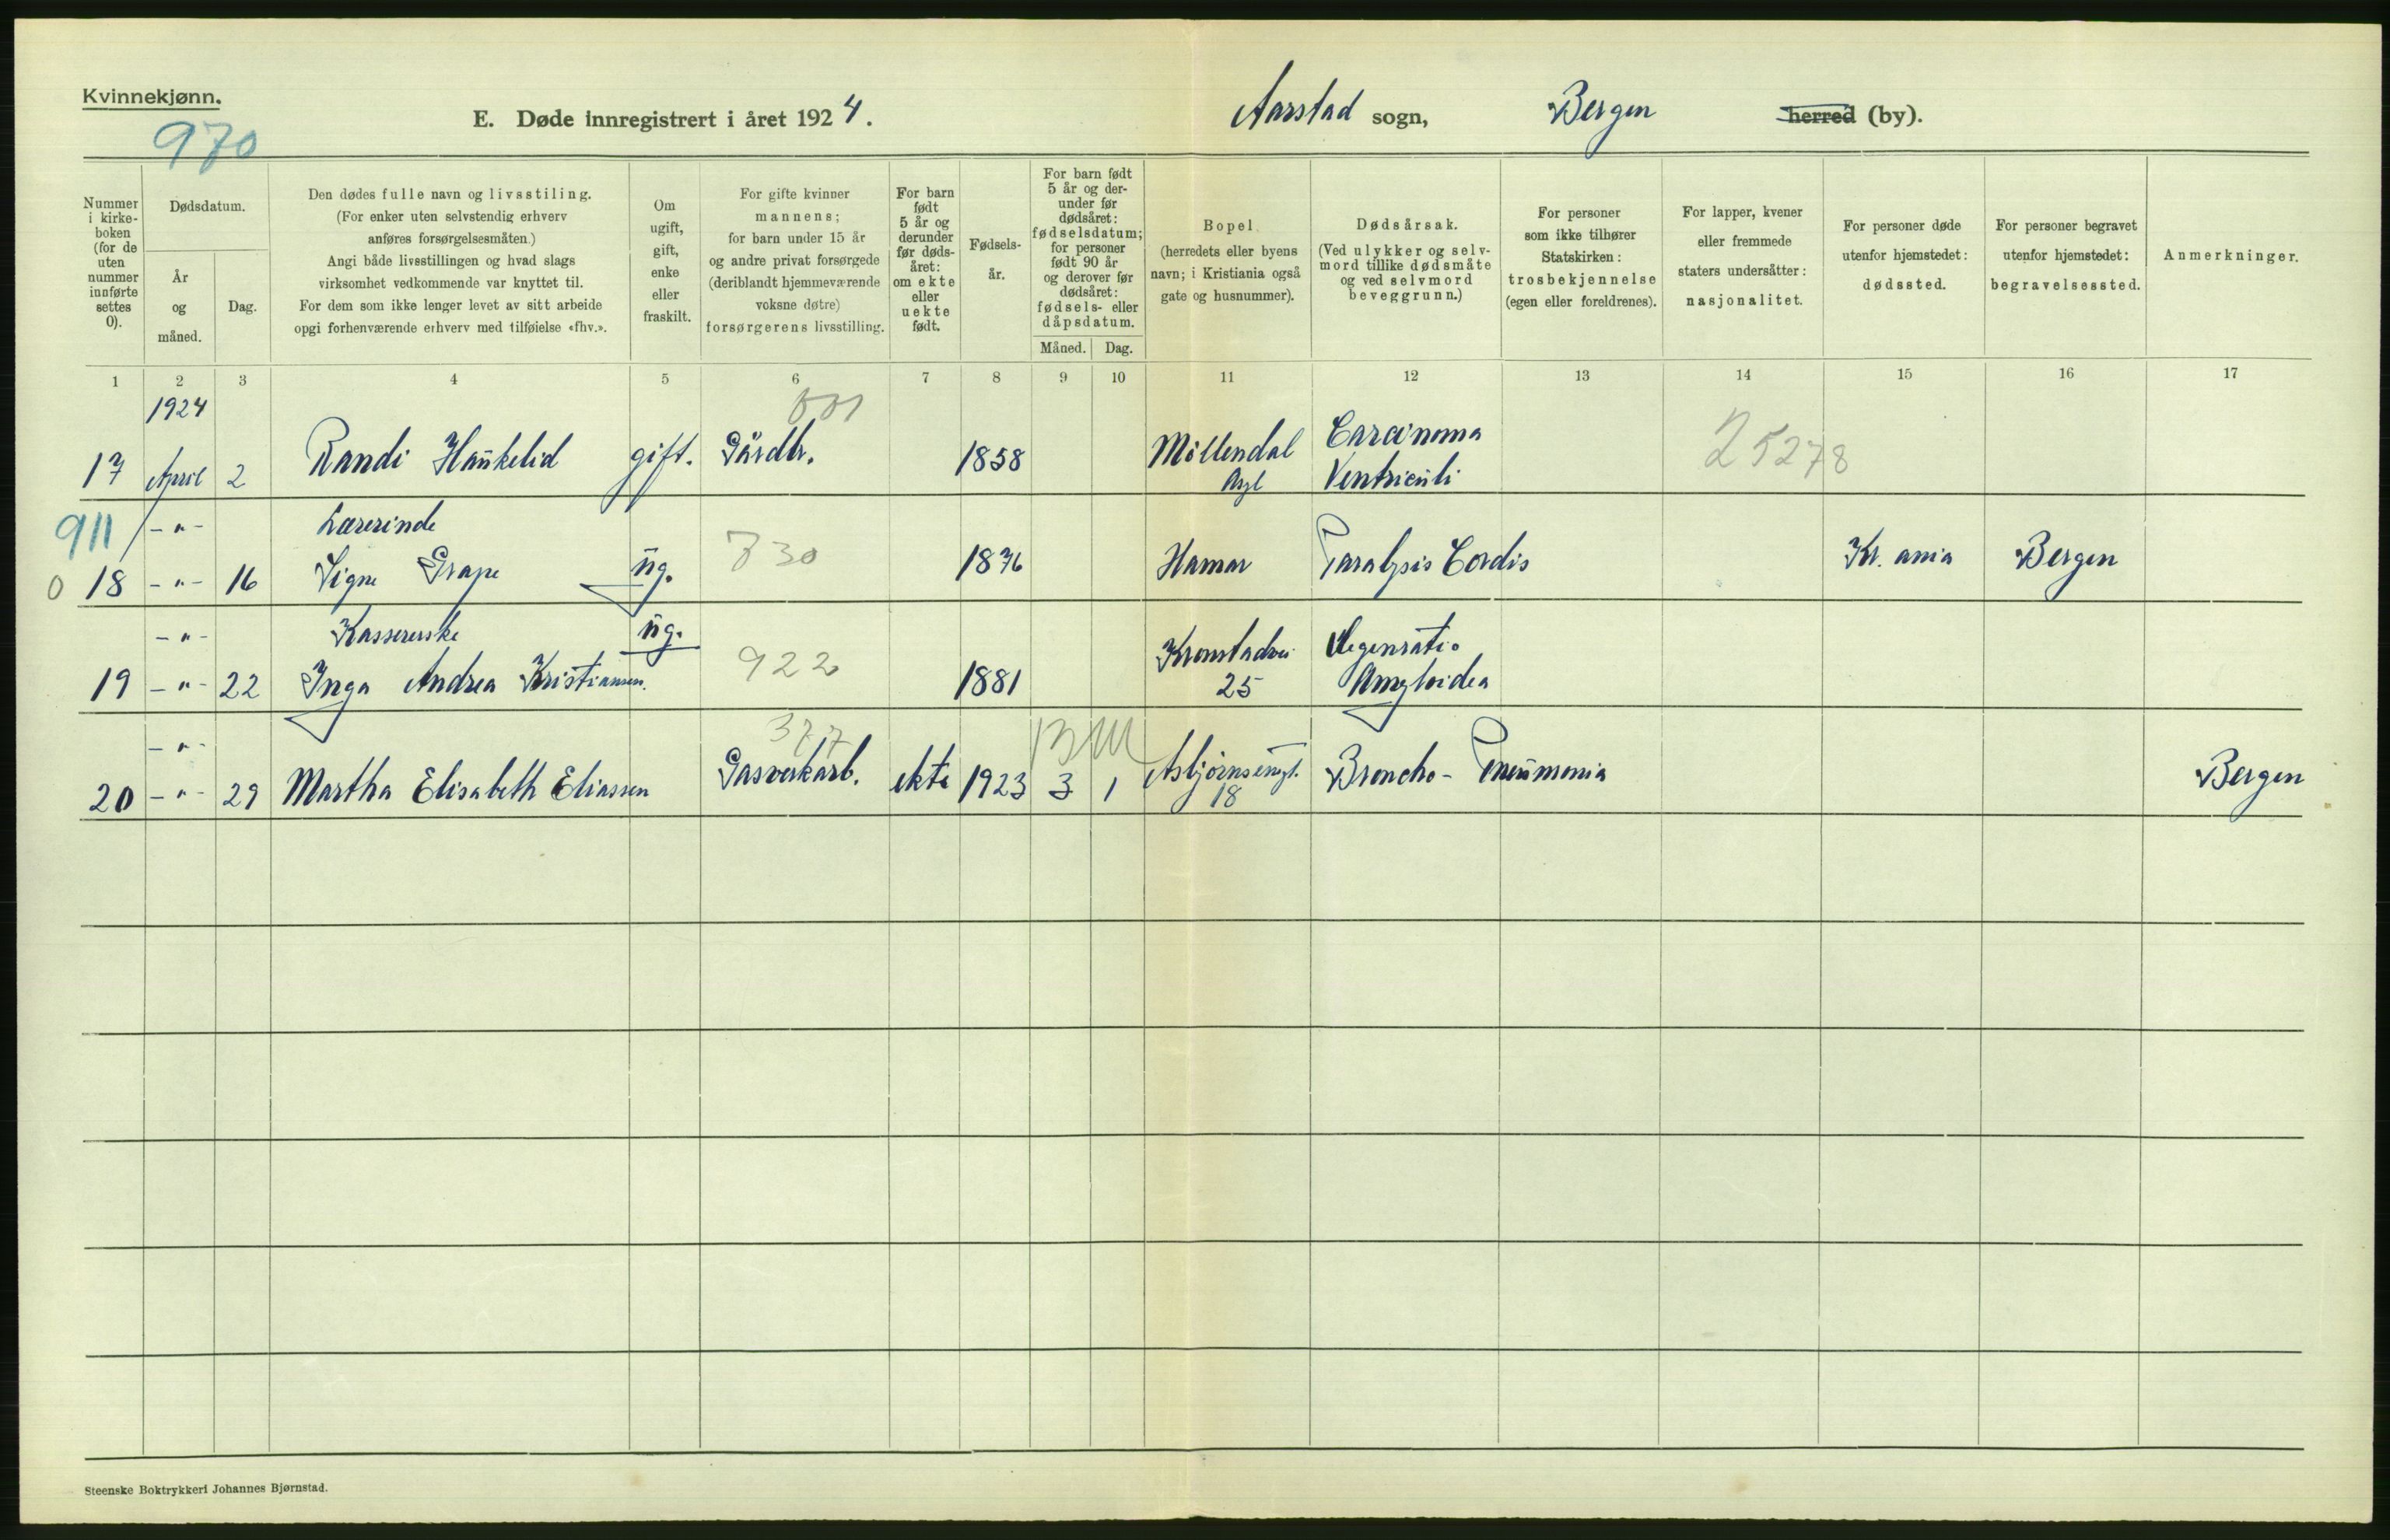 Kvinnekjønn.
970
E. Døde innregistrert i året 1924.
Aarstad sogn, Bergen herred (by).
Nummer i kirke-boken (for de uten nummer innførte settes 0).
Dødsdatum.
År og måned.
Dag.
Den dødes fulle navn og livsstiling.
(For enker uten selvstendig erhverv
anføres forsørgelsesmåten.)
Angi både livsstillingen og hvad slags
virksomhet vedkommende var knyttet til.
For dem som ikke lenger levet av sitt arbeide
opgi forhenværende erhverv med tilføielse «fhv.».
Om
ugift,
gift,
enke
eller
fraskilt.
For gifte kvinner
mannens;
for barn under 15 år
og andre privat forsørgede
(deriblandt hjemmeværende
voksne døtre)
forsørgerens livsstilling.
For barn
født
5 år og
derunder
før døds-
året:
om ekte
eller
uekte
født.
Fødsels-
år.
For barn født
5 år og der-
under før
dødsåret:
fødselsdatum;
for personer
født 90 år
og derover før
dødsåret:
fødsels- eller
dåpsdatum.
Måned. Dag.
Bopel.
(herredets eller byens
navn; i Kristiania også
gate og husnummer).
Dødsårsak.
(Ved ulykker og selv-
mord tillike dødsmåte
og ved selvmord
beveggrunn.)
For personer
som ikke tilhører
Statskirken:
trosbekjennelse
(egen eller foreldrenes).
For lapper, kvener
eller fremmede
staters undersåtter:
nasjonalitet.
For personer døde
utenfor hjemstedet:
dødssted.
For personer begravet
utenfor hjemstedet:
begravelsessted.
Anmerkninger.
1 2 3 4 5 6 7 8 9 10 11 12 13 14 15 16 17
1924
17 April 2 Randi Haukelid gift. Gårdbr. 1858 Møllendal Asyl Carcinoma Ventriculi 25278
911 -"- Lærerinde
0 18 -"- 16 Signe Grape ug. 730 1876 Hamar Paralysis Cordis Kr.ania Bergen
-"- Kassererske ug.
19 -"- 22 Inga Andrea Kristiansen. 922 1881 Kronstadvei 25 Degenratio Amyloidea
-"- 377
20 -"- 29 Martha Elisabeth Eliassen Gasverkarb. ekte 1923 3 1 Asbjørnsengt. 18 Broncho-Pneumonia Bergen
Steenske Boktrykkeri Johannes Bjørnstad.